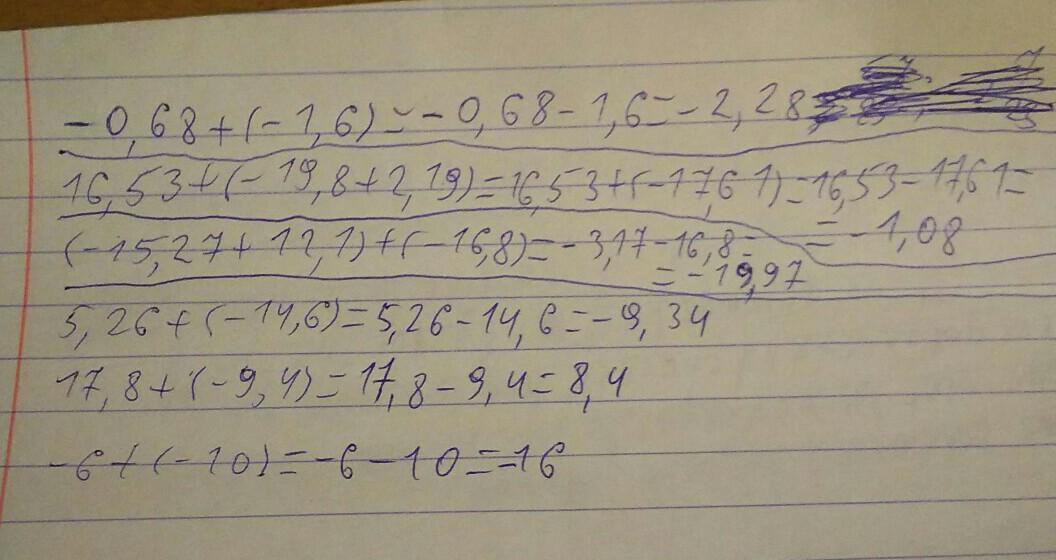 -0,68+(-1,6)=-0,68-1,6=-2,28
16,53+(-19,8+2,19)=16,53+(-17,61)=16,53-17,61=
=-1,08
(-15,27+12,1)+(-16,8)=-3,17-16,8=
=-19,97
5,26+(-14,6)=5,26-14,6=-9,34
17,8+(-9,4)=17,8-9,4=8,4
-6+(-10)=-6-10=-16